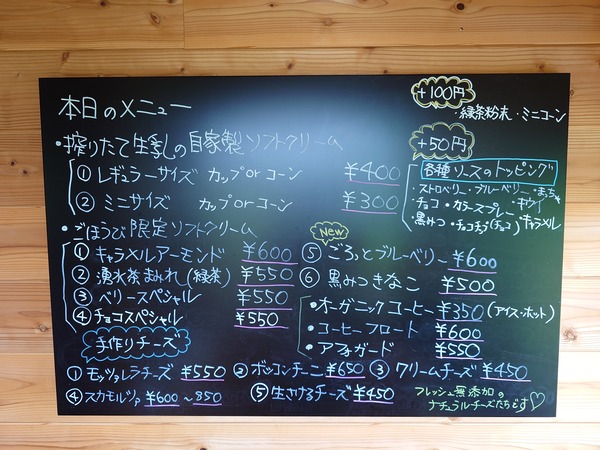 本日のメニュー
+100円
・緑茶粉末・ミニコーン
・搾りたて生乳の自家製ソフトクリーム
① レギュラーサイズ カップorコーン ¥400
② ミニサイズ カップorコーン ¥300
+50円
各種ソースのトッピング
・ストロベリー・ブルーベリー・まっちゃ
・チョコ・カラースプレー・キウイ
・黒みつ・チョコそう(チョコ)・キャラメル
・ごほうび限定ソフトクリーム
① キャラメルアーモンド ¥600
② 湧水茶まみれ(緑茶) ¥550
③ ベリースペシャル ¥550
④ チョコスペシャル ¥550
New
⑤ ごろっとブルーベリー ¥600
⑥ 黒みつきなこ ¥500
・オーガニックコーヒー ¥350 (アイス・ホット)
・コーヒーフロート ¥600
・アフォガード ¥550
手作りチーズ
① モッツァレラチーズ ¥550 ② ボッコンチーニ ¥650 ③ クリームチーズ ¥450
④ スカモルツァ ¥600~850 ⑤ 生さけるチーズ ¥450
フレッシュ無添加の
ナチュラルチーズたちです♡